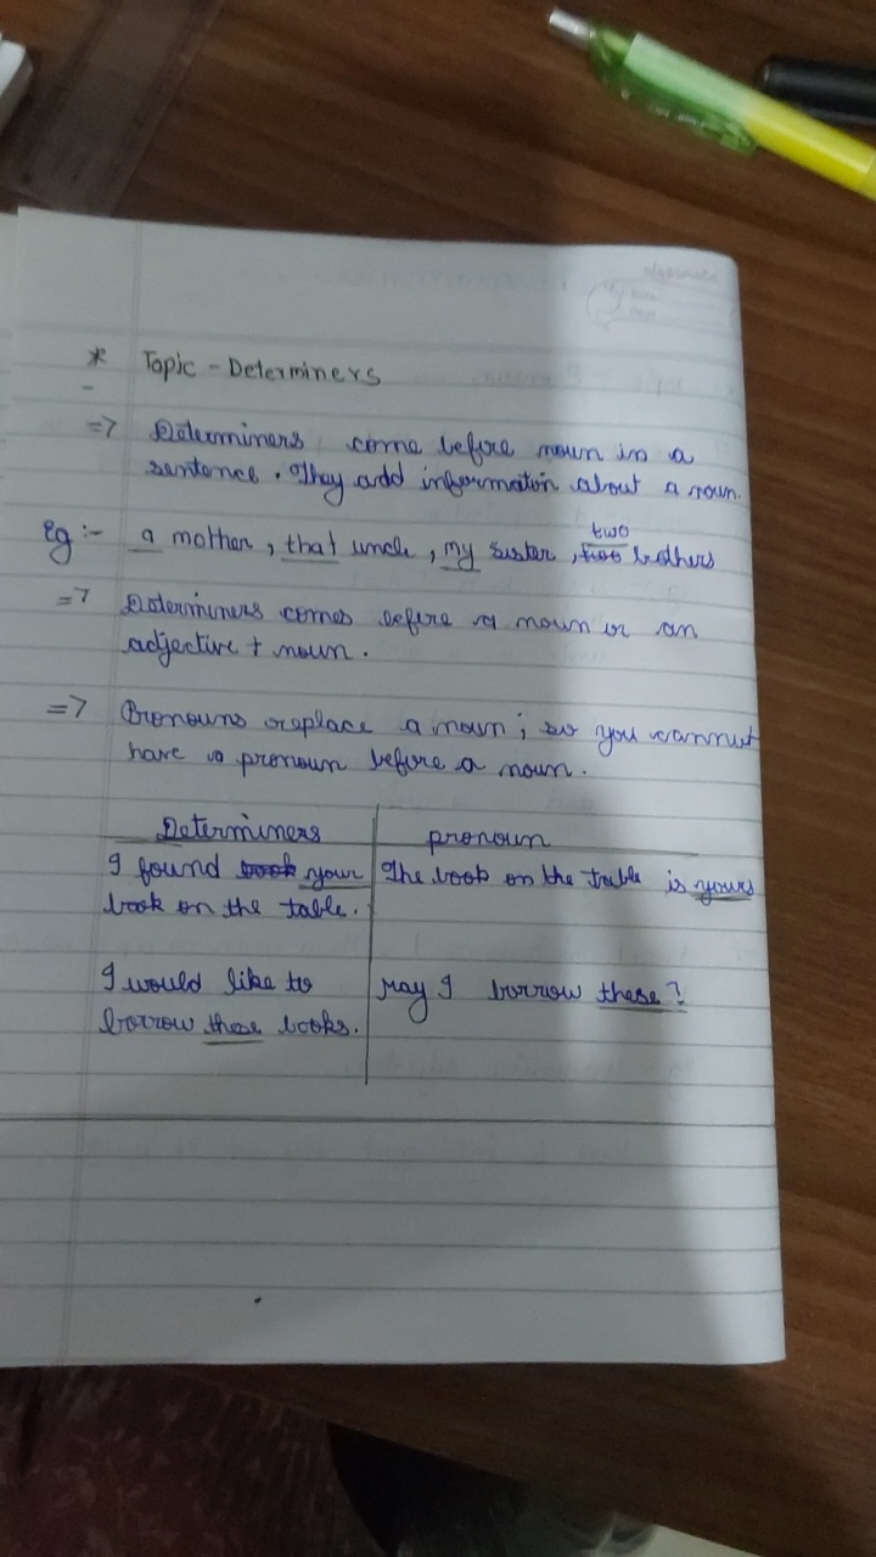 * Topic - Determiners
=> Determiners come before noun in a
sentence. They add information about a noun.
two
Eg :- a mother, that uncle, my sister, brothers
=> Determiners comes before a noun or an
adjective + noun.
=> Pronouns replace a noun; so you cannot
have a pronoun before a noun.
Determiners pronoun
I found book your The book on the table is yours
book on the table.
I would like to May I borrow these?
borrow these books.